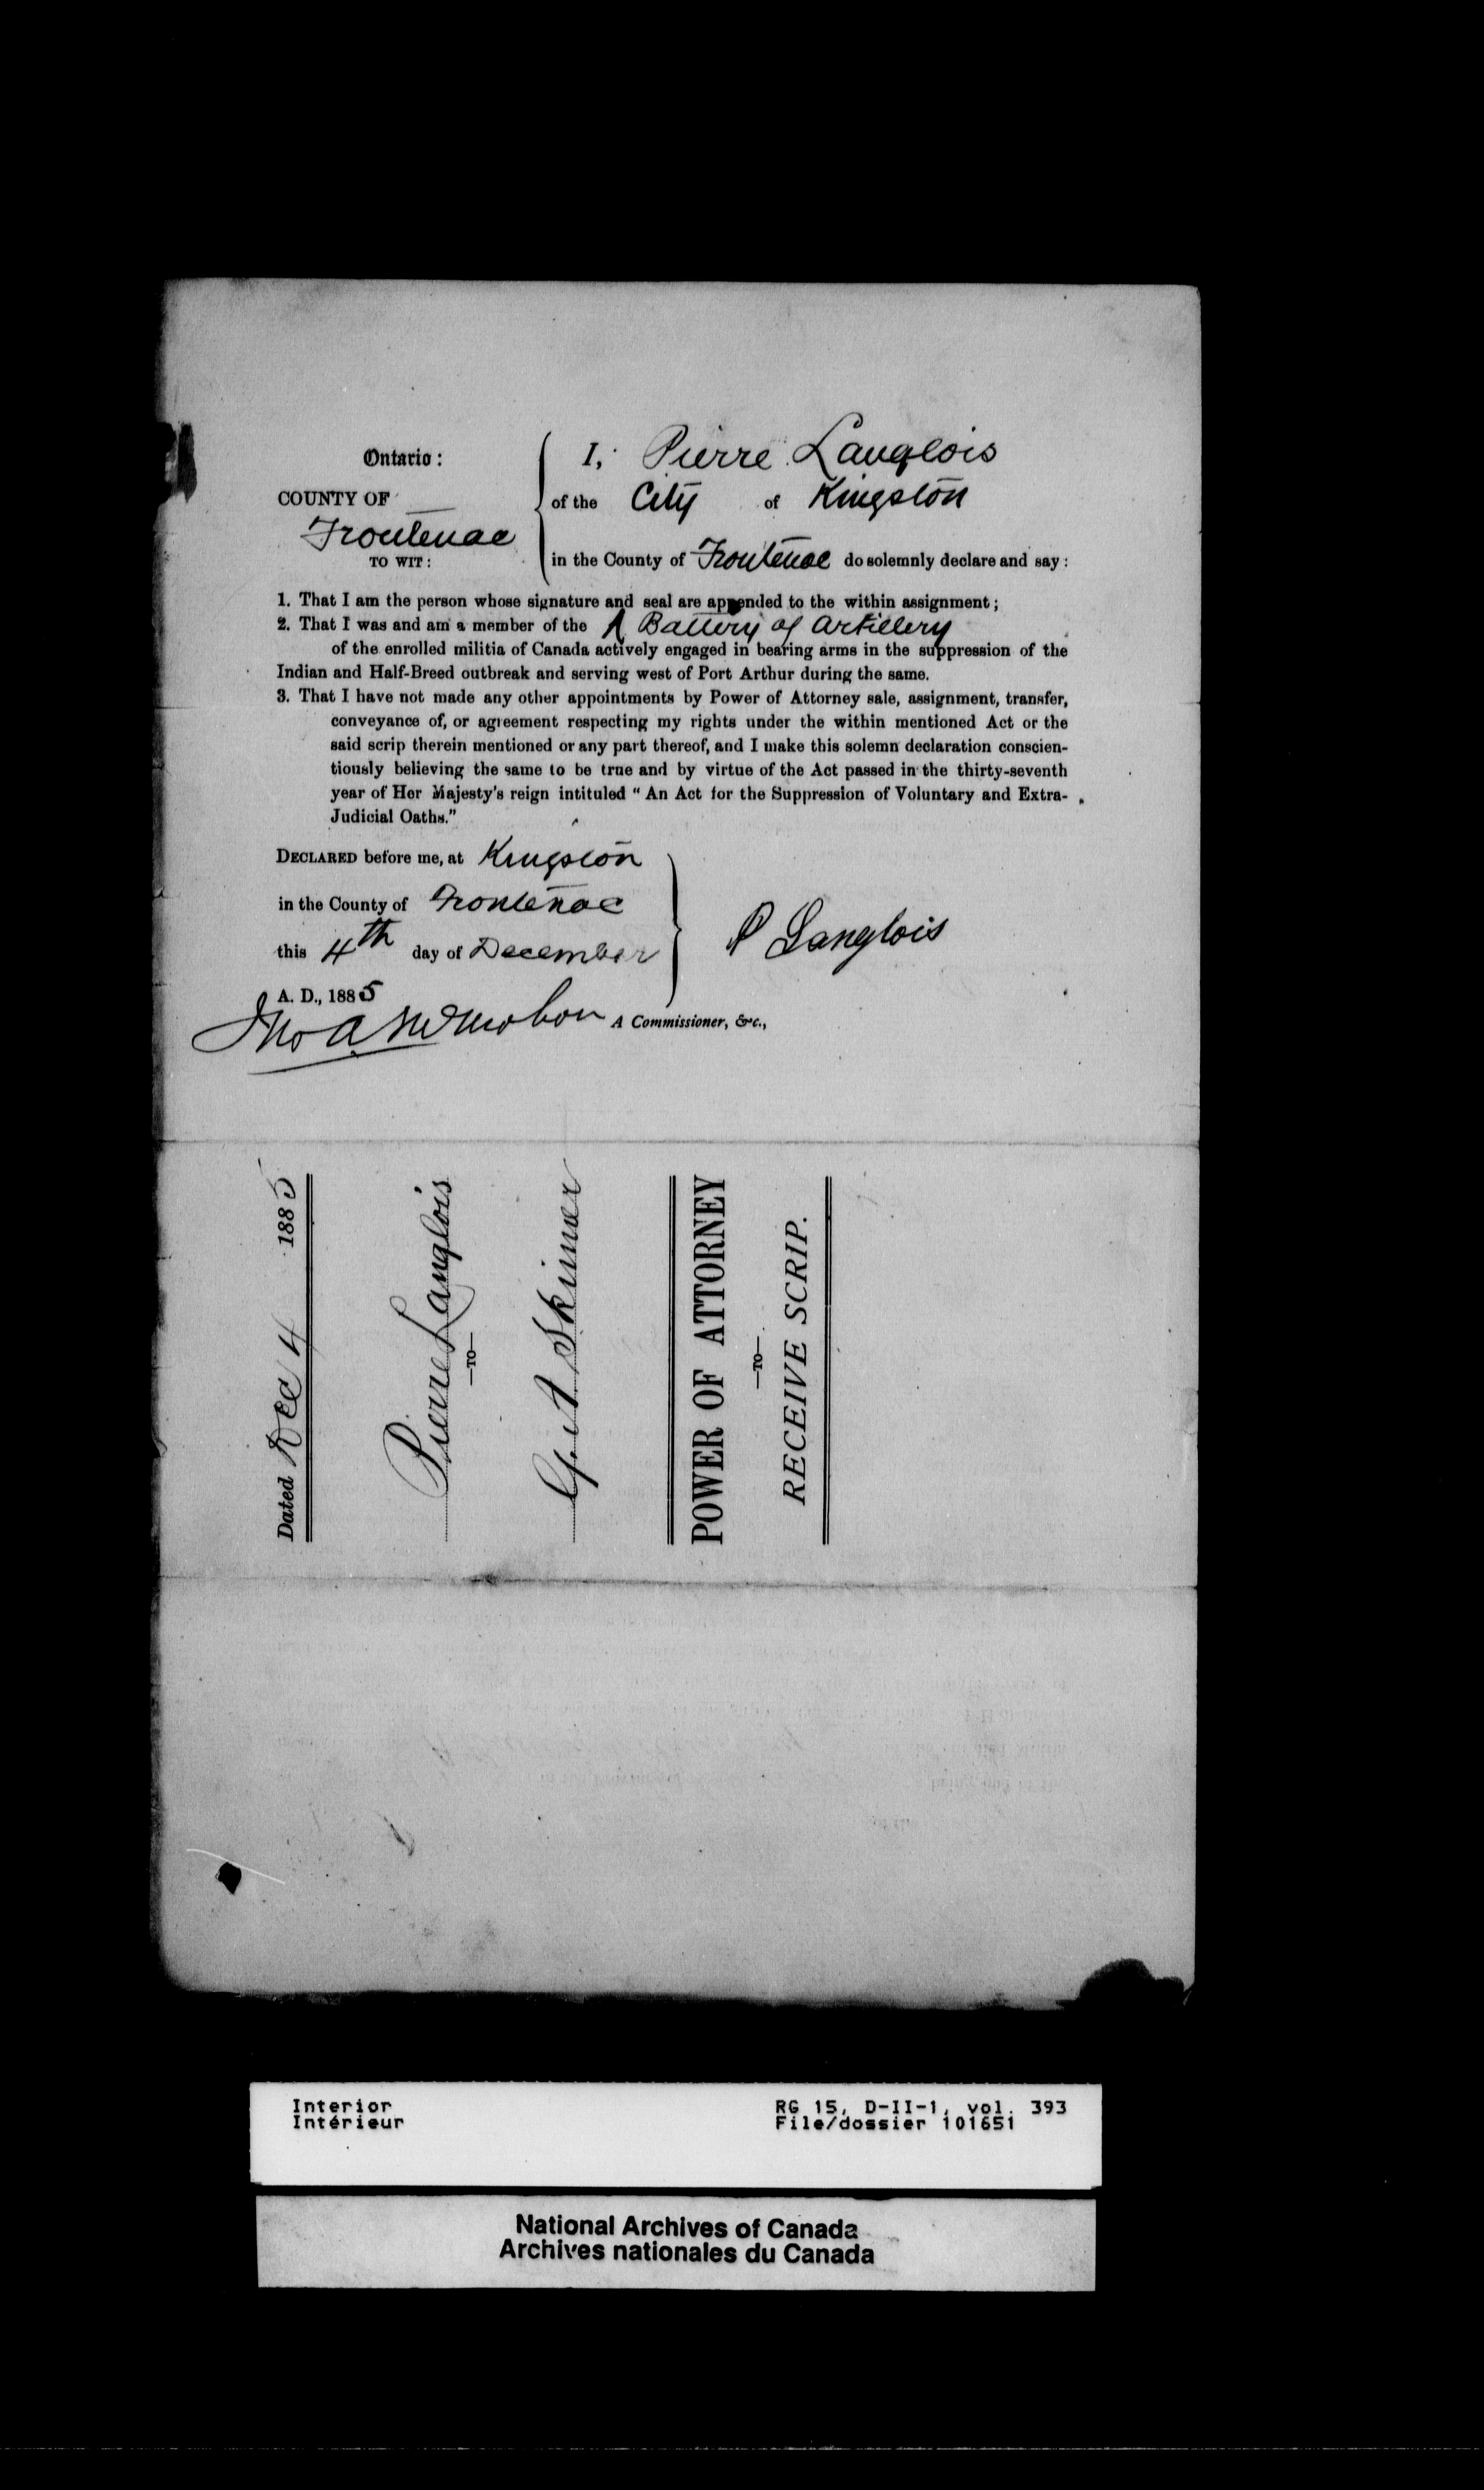 Ontario:
COUNTY OF
Frontenac
TO WIT:
I, Pierre Langlois
of the City of Kingston
in the County of Frontenac do solemnly declare and say:
1. That I am the person whose signature and seal are appended to the within assignment;
2. That I was and am a member of the A Battery of Artillery
of the enrolled militia of Canada actively engaged in bearing arms in the suppression of the
Indian and Half-Breed outbreak and serving west of Port Arthur during the same.
3. That I have not made any other appointments by Power of Attorney sale, assignment, transfer,
conveyance of, or agreement respecting my rights under the within mentioned Act or the
said scrip therein mentioned or any part thereof, and I make this solemn declaration conscien-
tiously believing the same to be true and by virtue of the Act passed in the thirty-seventh
year of Her Majesty's reign intituled "An Act for the Suppression of Voluntary and Extra-
Judicial Oaths."
DECLARED before me, at Kingston
in the County of Frontenac
this 4th day of December
A. D., 1885
P Langlois
Jno A
A Commissioner, &c.,
Dated Dec 4 1885
Pierre Langlois
—TO—
G. A. Skinner
POWER OF ATTORNEY
—TO—
RECEIVE SCRIP.
Interior
Intérieur
RG 15, D-II-1, vol. 393
File/dossier 101651
National Archives of Canada
Archives nationales du Canada